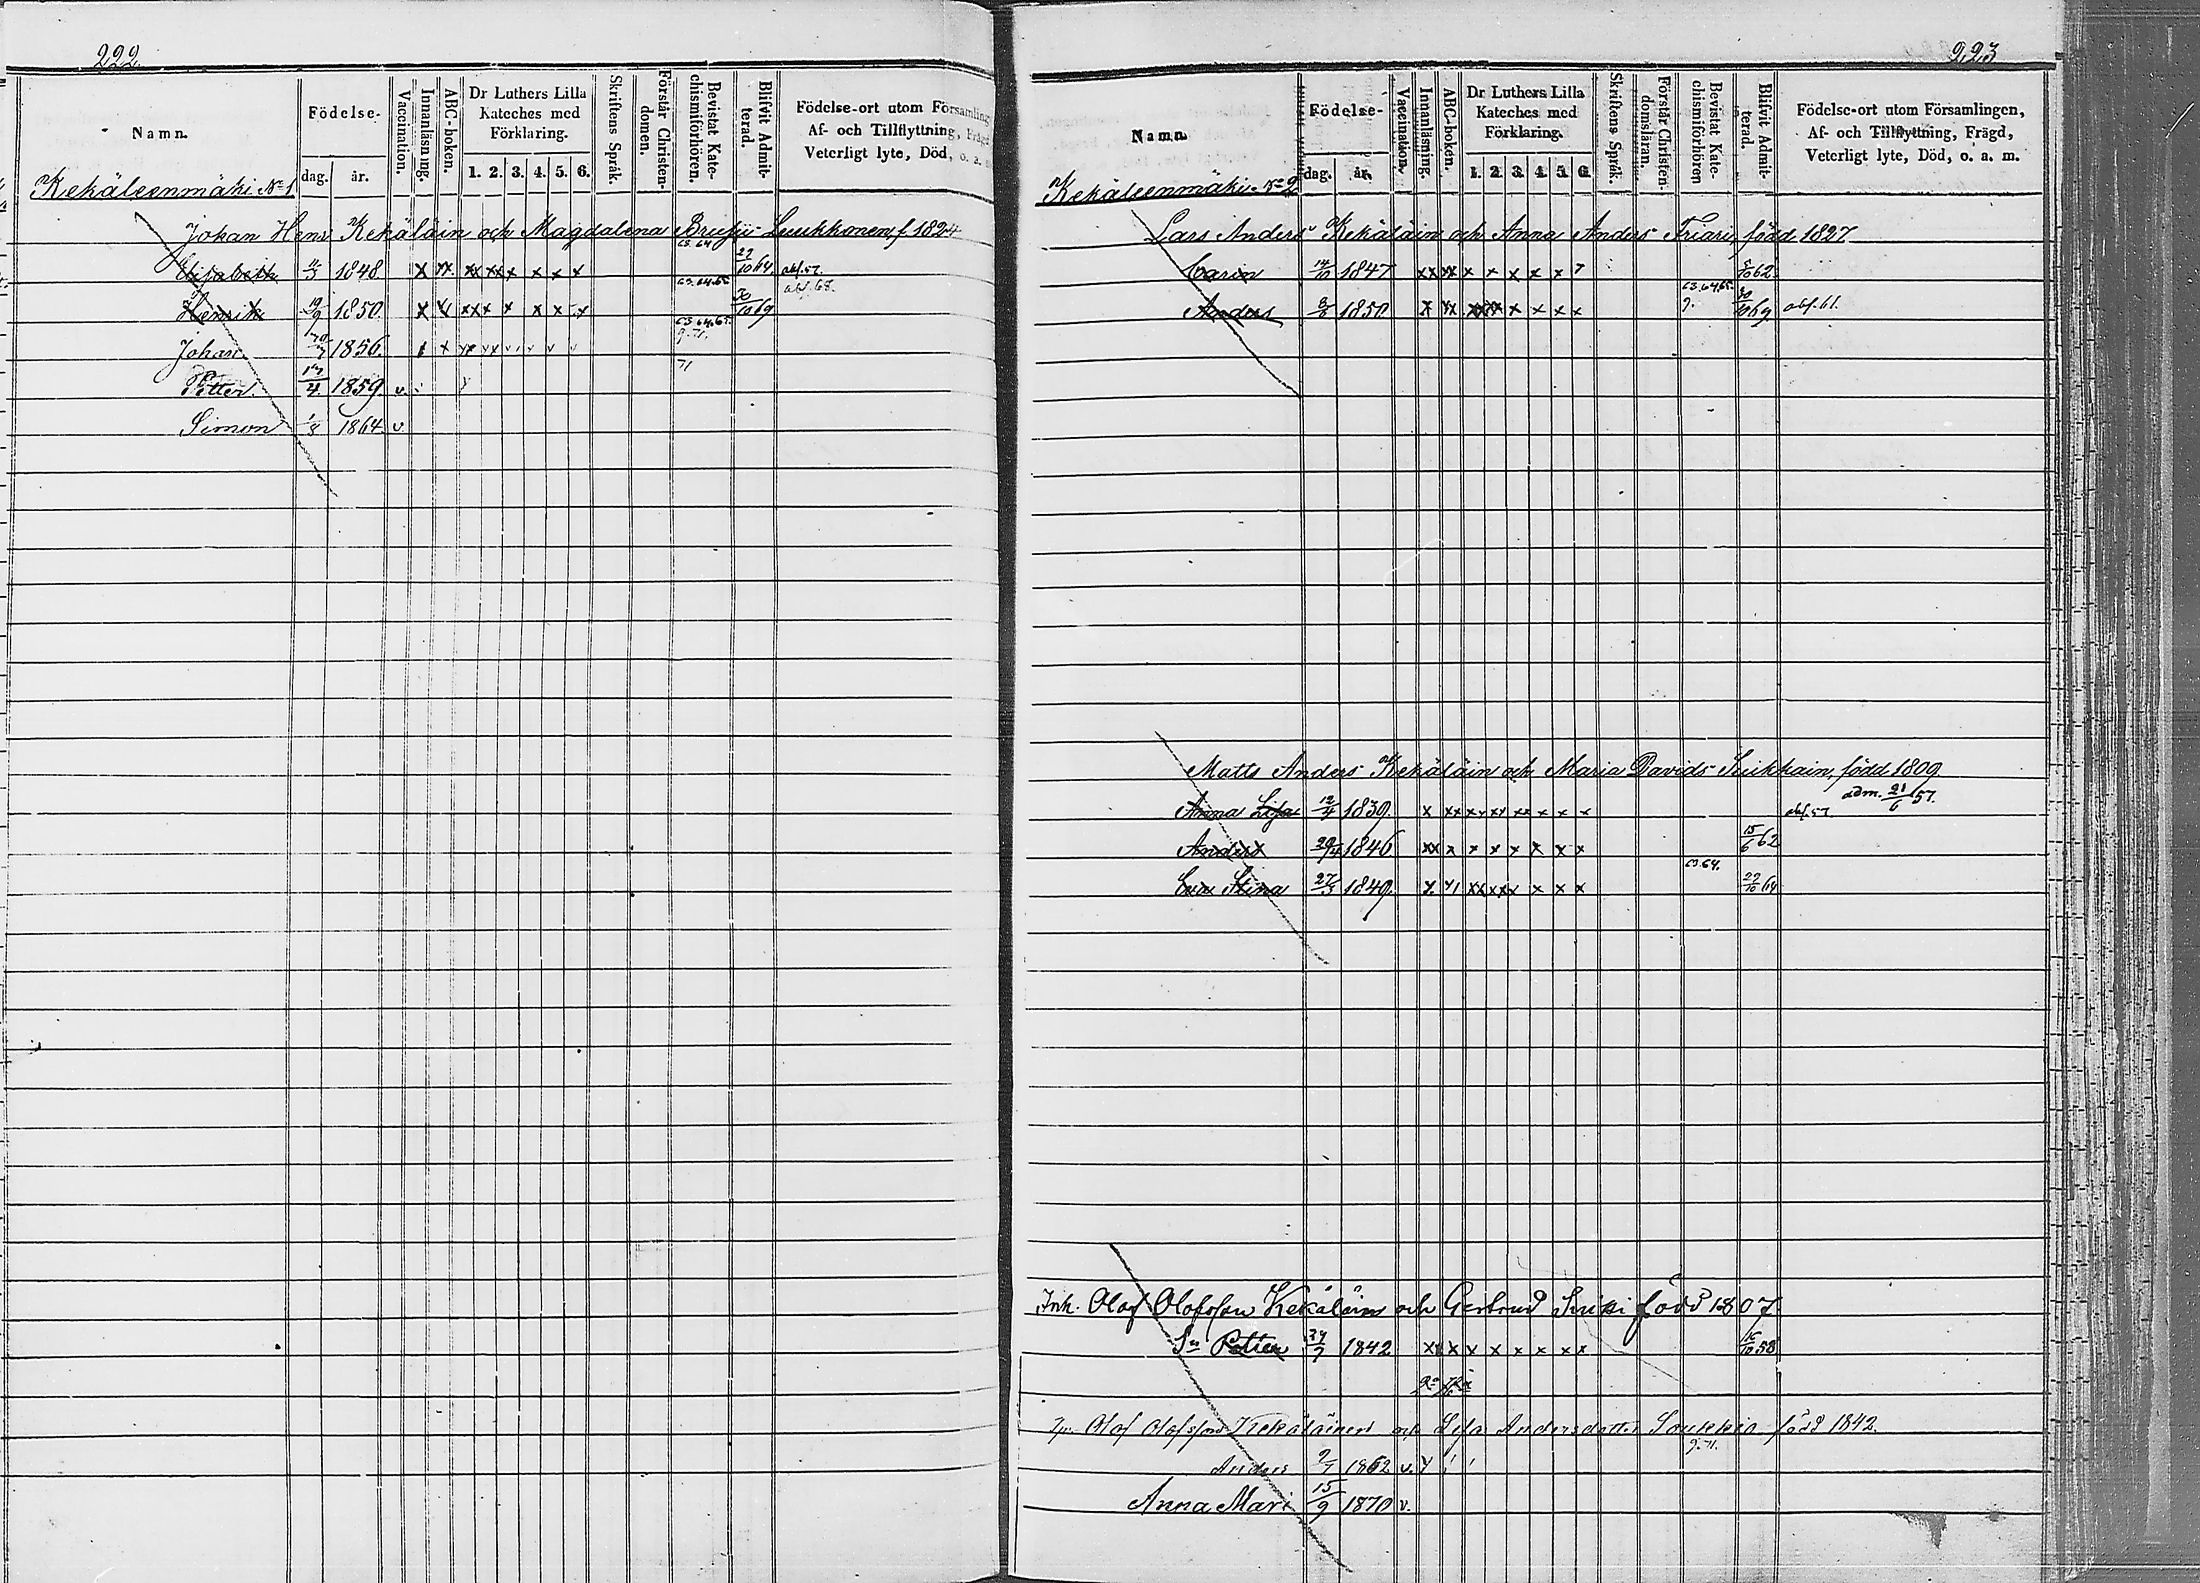 222
Namn. Födelse- dag. år. Vaccination. Innanläsning. ABC-boken. Dr Luthers Lilla Kateches med Förklaring. 1. 2. 3. 4. 5. 6. Skriftens Språk. Förstår Christendomen. Bevistat Katechismiförhören. Blifvit Admitterad. Födelse-ort utom Församling Af- och Tillflyttning, Frägd Veterligt lyte, Död, o. a.
Kekäleenmäki No 1
Johan Hens Kekäläin och Magdalena Luukkonen, f 1824
Elisabeth 1848 x xx xx xx x x x x 63.64 27/10 64 abs. 57.
Henrik 19/9 1850 x xx x x x x x 63.64.65 30/10 69 abs. 68.
Johan 1856. 63.64.65. 9.71.
Petter. 17/4 1859. v. 71
Simon 1864. v.
223
Namn. Födelse- dag. år. Vaccination. Innanläsning. ABC-boken. Dr Luthers Lilla Kateches med Förklaring. 1. 2. 3. 4. 5. 6. Skriftens Språk. Förstår Christendomsläran. Bevistat Katechismiförhören Blifvit Admitterad. Födelse-ort utom Församlingen, Af- och Tillflyttning, Frägd, Veterligt lyte, Död, o. a. m.
Kekäleenmäki No 2
Lars Anders Kekäläin och Anna Anders Triari, född 1827
Carin 14/10 1847 xx xx x x x x x 62
Anders 1850 x xx xx xx x x x x 63.64.65. 9. 30/10 69 abs. 61.
Matts Anders Kekäläin och Maria Davids Suikkain, född 1809
adm. 21/6 57.
Anna Lisa 12/4 1839. x xx xx xx xx x x x abs. 57
Anders 29/4 1846 xx x x x x x x x 15/6 62
Eva Stina 27/3 1849. xx xx x x x x 63.64. 27/10 64
Inh. Olof Olofsson Kekäläin och Gertrud född 1807
Sn Petter 1842 x x x x x x x x 16/10 58
Olof Olofsson Kekäläinen och Lisa Andersdotter Soukkio född 1842.
9.71.
Anders 1862 v.
Anna Mari 15/9 1870 v.